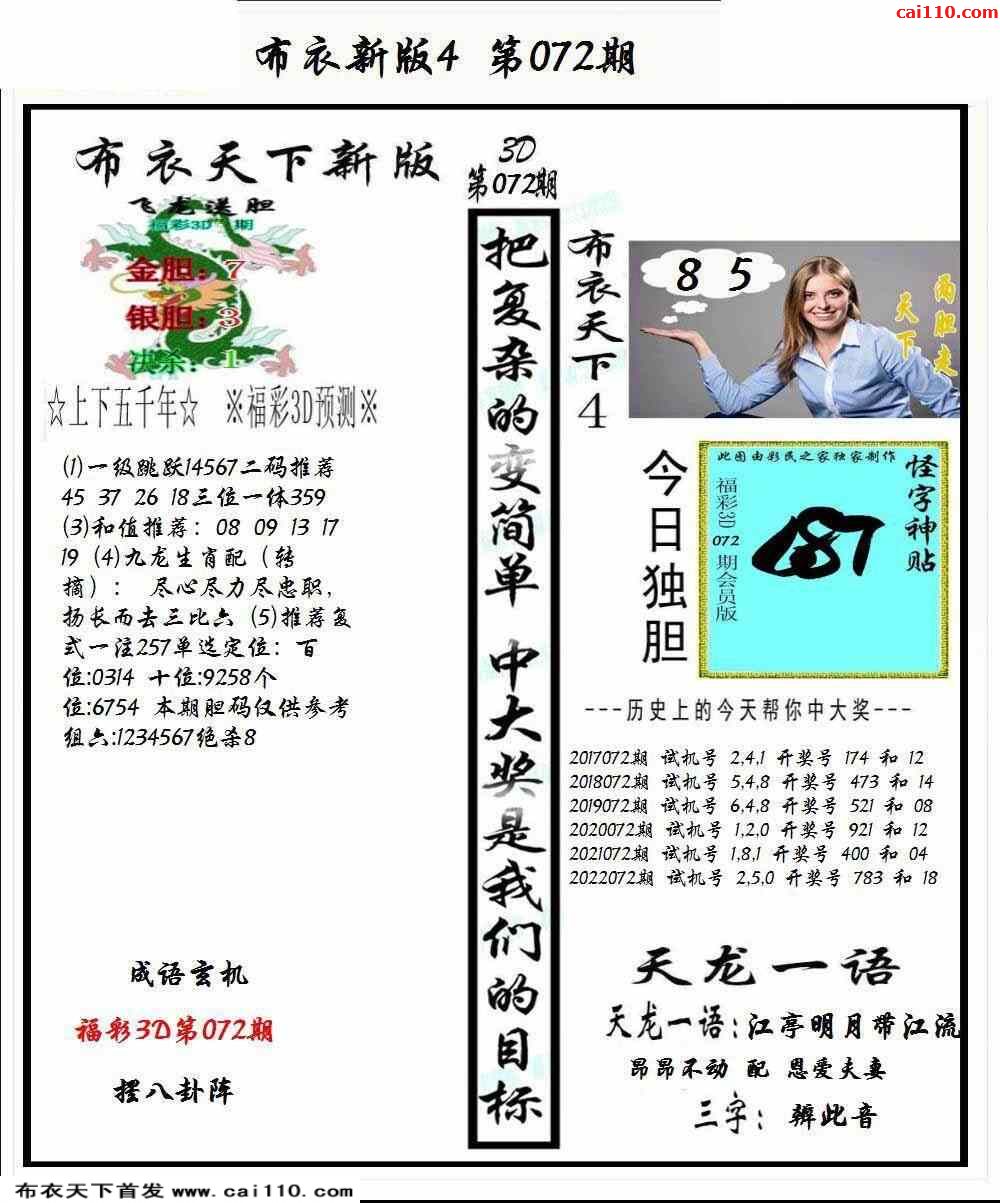 cai110.com
布衣新版4 第072期
布衣天下新版
飞龙送胆
福彩3D 期
金胆：7
银胆：3
决杀：1
☆上下五千年☆ ※福彩3D预测※
(1)一级跳跃14567二码推荐
45 37 26 18三位一体359
(3)和值推荐：08 09 13 17
19 (4)九龙生肖配（转
摘）： 尽心尽力尽忠职，
扬长而去三比六 (5)推荐复
式一注257单选定位：百
位:0314 十位:9258个
位:6754 本期胆码仅供参考
组六:1234567绝杀8
成语玄机
福彩3D第072期
摆八卦阵
3D
第072期
把复杂的变简单 中大奖是我们的目标
布衣天下4
8 5
两胆走
天下
今日独胆
此图由彩民之家独家制作
怪字神贴
福彩3D 072 期会员版
---历史上的今天帮你中大奖---
2017072期 试机号 2,4,1 开奖号 174 和 12
2018072期 试机号 5,4,8 开奖号 473 和 14
2019072期 试机号 6,4,8 开奖号 521 和 08
2020072期 试机号 1,2,0 开奖号 921 和 12
2021072期 试机号 1,8,1 开奖号 400 和 04
2022072期 试机号 2,5,0 开奖号 783 和 18
天龙一语
天龙一语:江亭明月带江流
昂昂不动 配 恩爱夫妻
三字： 辨此音
布衣天下首发 www.cai110.com